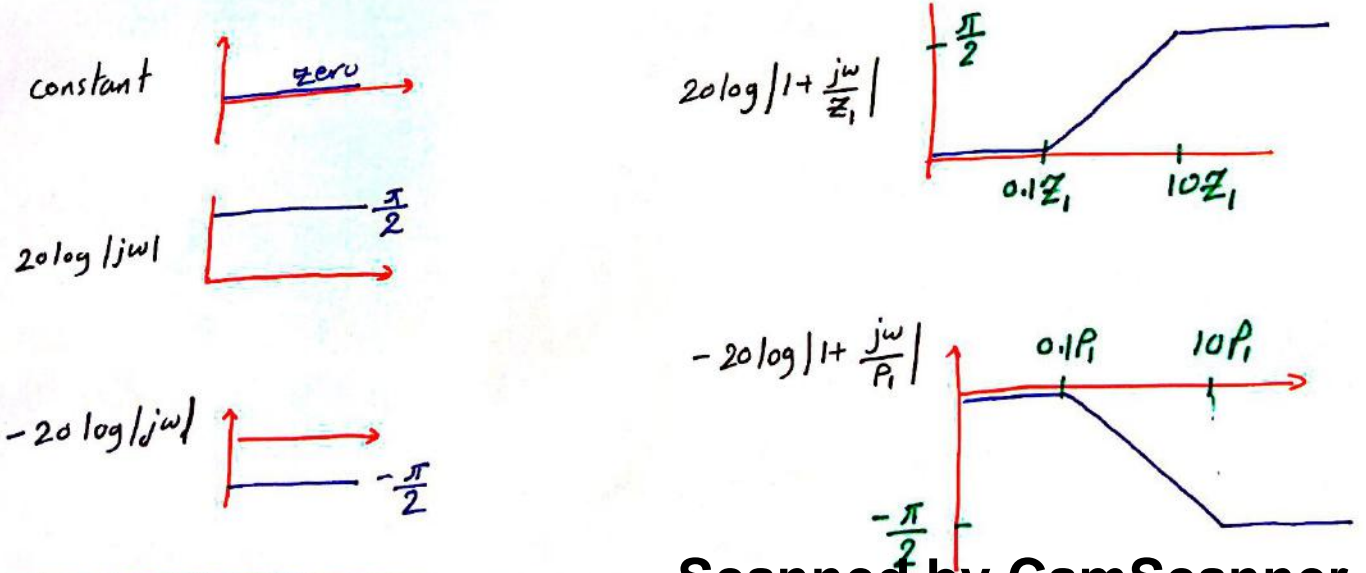 constant
zero
20 log |jω|
π/2
-20 log |jω|
-π/2
20 log |1+ jω/Z₁|
π/2
0.1Z₁ 10Z₁
-20 log |1+ jω/P₁|
0.1P₁ 10P₁
-π/2
Scanned by CamScanner